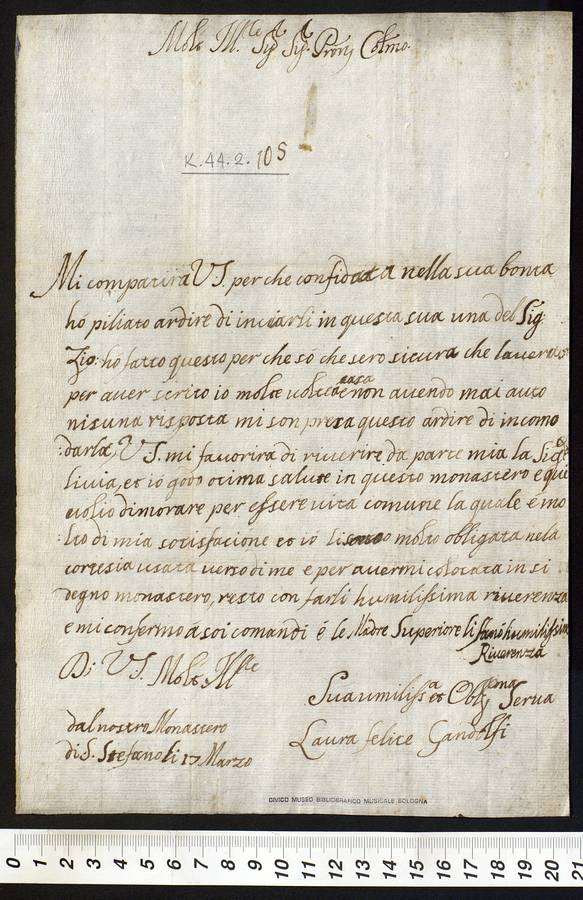 Molto Ill.re Sig.r Sig.r Pron Colmo.
K.44.2.105
Mi compatirà V.S. perche confidata nella sua bonta
hó piliato ardire di inviarli in questa sua una del Sig.
Zio: hó fatto questo perche só che sero sicura che lavera
per aver scrito io molte volte a casa e non avendo mai auto
nisuna risposta mi son presa questo ardire di incomo
:darla, V.S. mi favorira di riverire da parte mia la Sig.ra
livia, et ió godo otima salute in questo monastero e qui
volio dimorare per essere vita comune la quale é mo
:lto di mia sotisfacione et ió li sono molto obligata nela
cortesia usata verso di me e per avermi colocata in si
degno monastero, resto con farli humilissima riverenza
e mi confermo á soi comandi é le Madre Superiore li fanó humilissima
Riverenza
Di V.S. Molto Ill.re
Sua umiliss.a et Obl.ma Serva
dal nostro Monastero
Laura felice Gandolfi
di S. Stefano li 17 Marzo
CIVICO MUSEO BIBLIOGRAFICO MUSICALE BOLOGNA
0 1 2 3 4 5 6 7 8 9 10 11 12 13 14 15 16 17 18 19 20 21